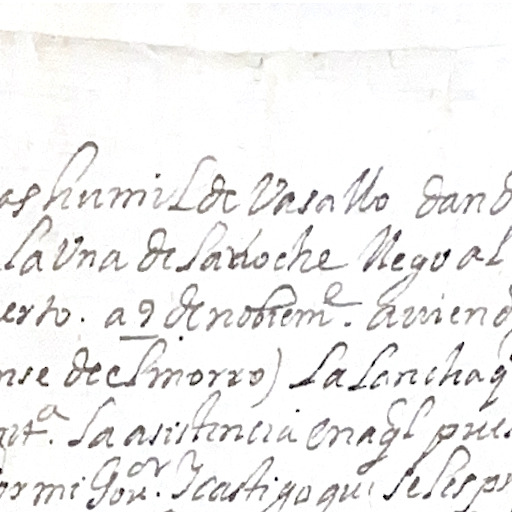 as humilde Vasallo dand
la Una de la noche llego al
erto. a 9 de nobiem.e auiend
nse de el morro) La Lancha q
t.a la asistencia en aql pues
or mi Gov.or Y castigo que se les pr